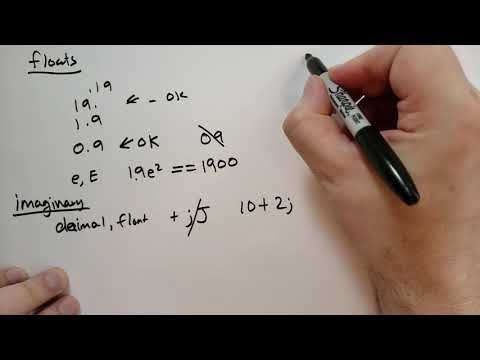 floats
.19
19. ← - OK
1.9
0.9 ← OK 09
e, E 19e² == 1900
imaginary
decimal, float + j/J 10+2j
Sharpie